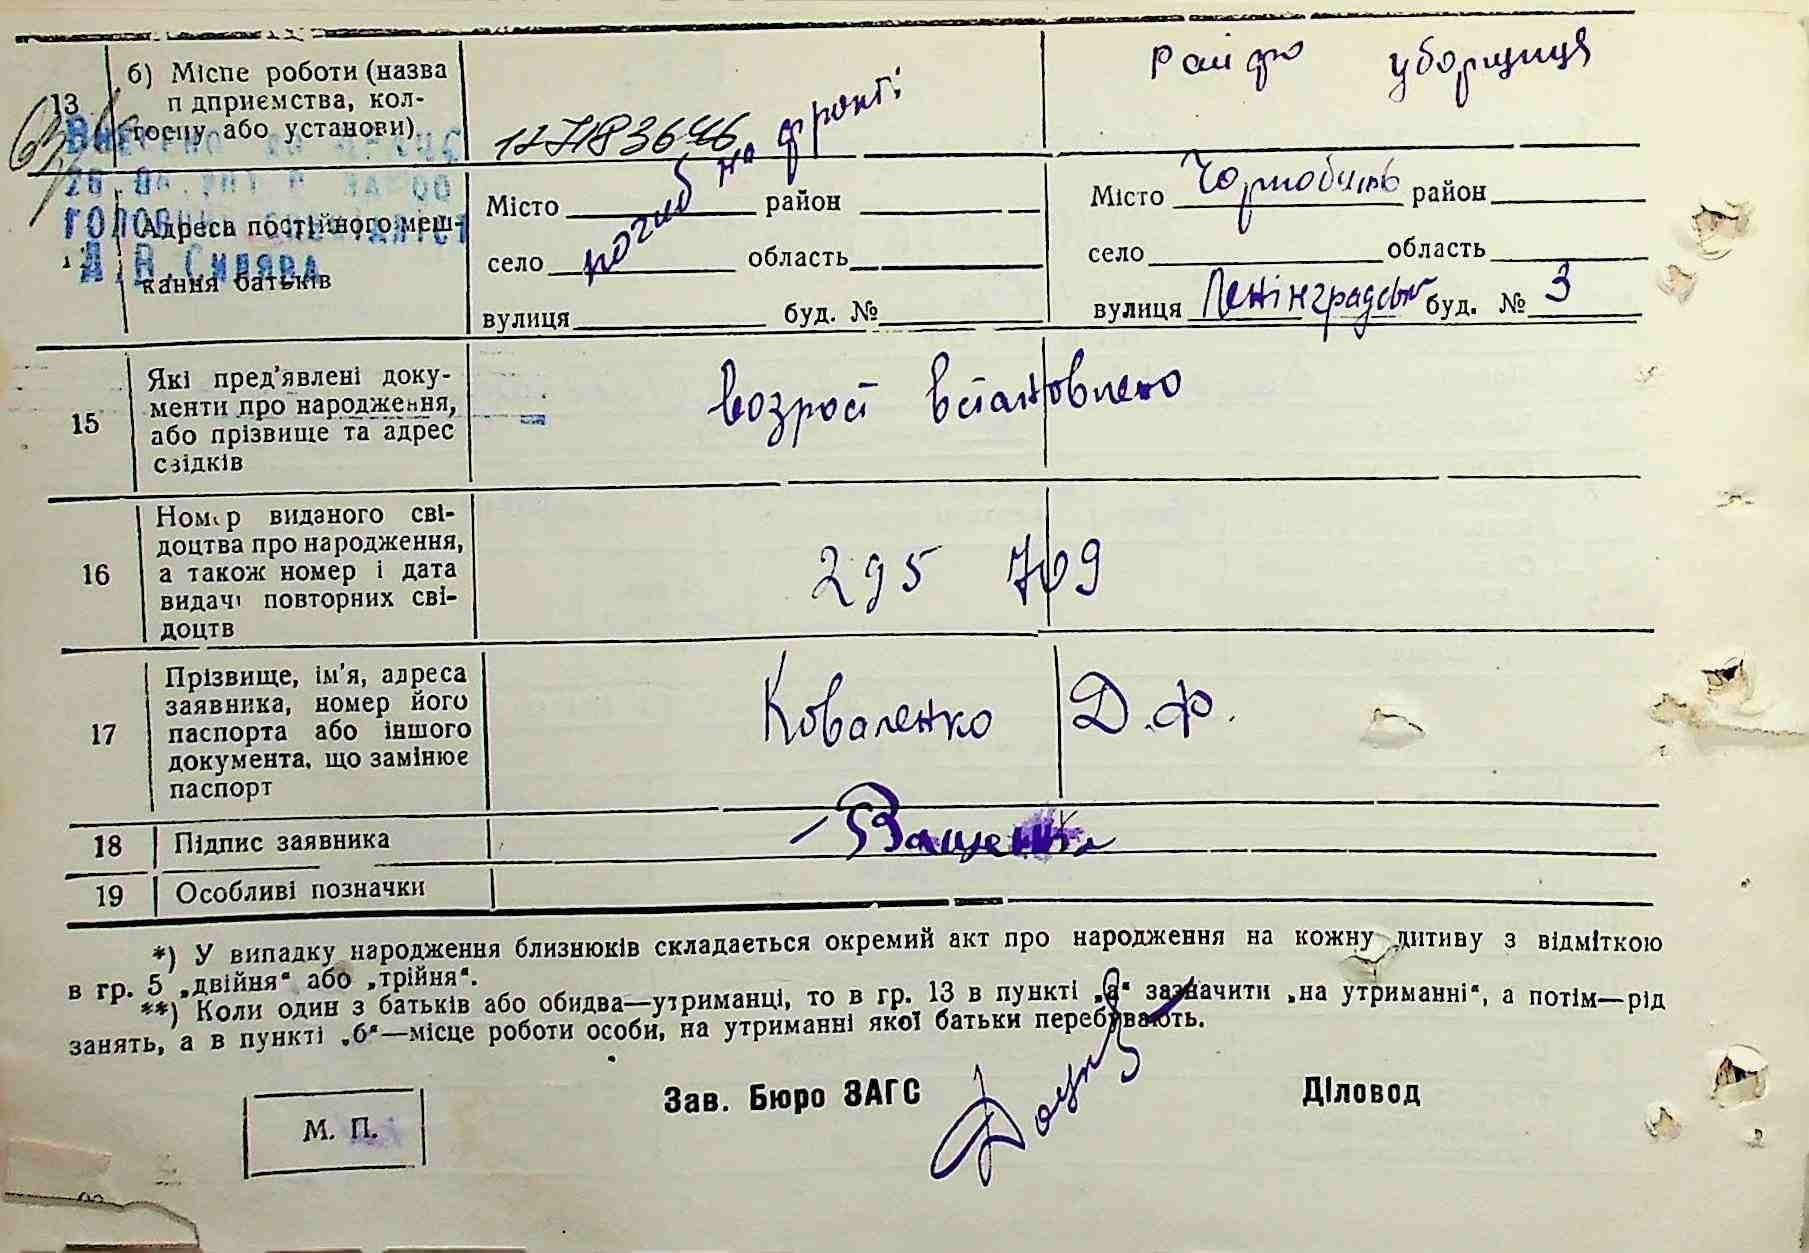 13
б) Місце роботи (назва
п дприємства, кол-
госпу або установи)
1271836446
Райфо уборщиця
Адреса постійного меш-
кання батьків
погиб на фронті
Місто район
село область
вулиця буд. №
Місто Чорнобиль район
село область
вулиця Ленінградська буд. № 3
А В Синява
15
Які пред'явлені доку-
менти про народження,
або прізвище та адрес
свідків
возраст встановлено
16
Номер виданого сві-
доцтва про народження,
а також номер і дата
видачі повторних сві-
доцтв
295 709
17
Прізвище, ім'я, адреса
заявника, номер його
паспорта або іншого
документа, що замінює
паспорт
Коваленко Д.Ф.
18
Підпис заявника
19
Особливі позначки
*) У випадку народження близнюків складається окремий акт про народження на кожну дитину з відміткою
в гр. 5 „двійня“ або „трійня“.
**) Коли один з батьків або обидва—утриманці, то в гр. 13 в пункті „а“ зазначити „на утриманні“, а потім—рід
занять, а в пункті „б“—місце роботи особи, на утриманні якої батьки перебувають.
Зав. Бюро ЗАГС
Діловод
М. П.